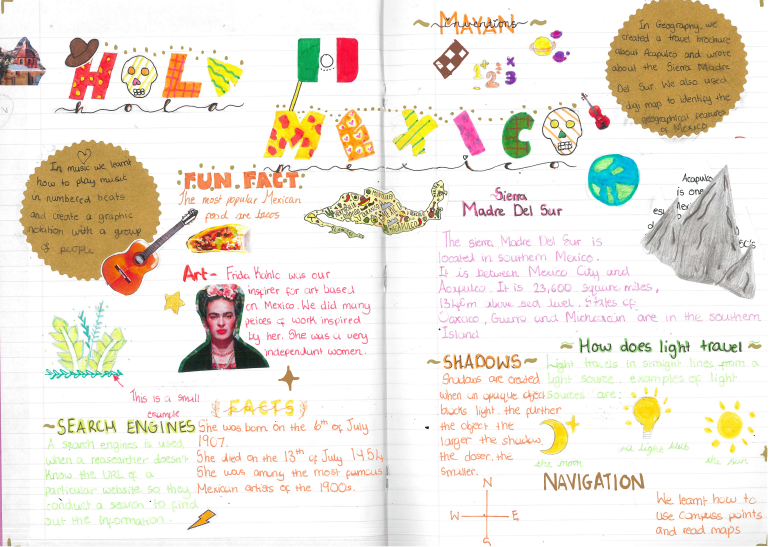 HOLA
hola
MEXICO
mexico
In music we learnt
how to play music
in numbered beats
and create a graphic
notation with a group
of people
FUN FACT
The most popular Mexican
food are tacos
Art- Frida Kahlo was our
inspirer for art based
on Mexico. We did many
peices of work inspired
by her. She was a very
independant women.
This is a small
example
FACTS
She was born on the 6th of July
1907.
She died on the 13th of July 1954
She was among the most famous
Mexican artists of the 1900s.
~SEARCH ENGINES
A search engines is used
when a reasearther doesn't
know the URL of a
particular website so they
conduct a search to find
out the information.
MAYAN
inventions
1 2 3
In Geography, we
created a travel brochure
about Acapulco and wrote
about the Sierra Madre
Del Sur. We also used
digi map to identify the
geographical features
of MEXICO
Sierra
Madre Del Sur
The sierra Madre Del Sur is
located in southern Mexico.
It is between Mexico City and
Acapulco. It is 23,600 square miles,
above sea level. States of
Oaxaca, and Michoacan are in the southern
Island
Acapulco
is one
~How does light travel~
Light travels in straight lines from a
light source. examples of light
sources are:
the moon
light bulb
the sun
~SHADOWS~
Shadows are created
when an opaque object
blocks light. the further
the object the
larger the shadow,
the closer, the
smaller.
NAVIGATION
N
W E
S
We learnt how to
use compass points
and read maps